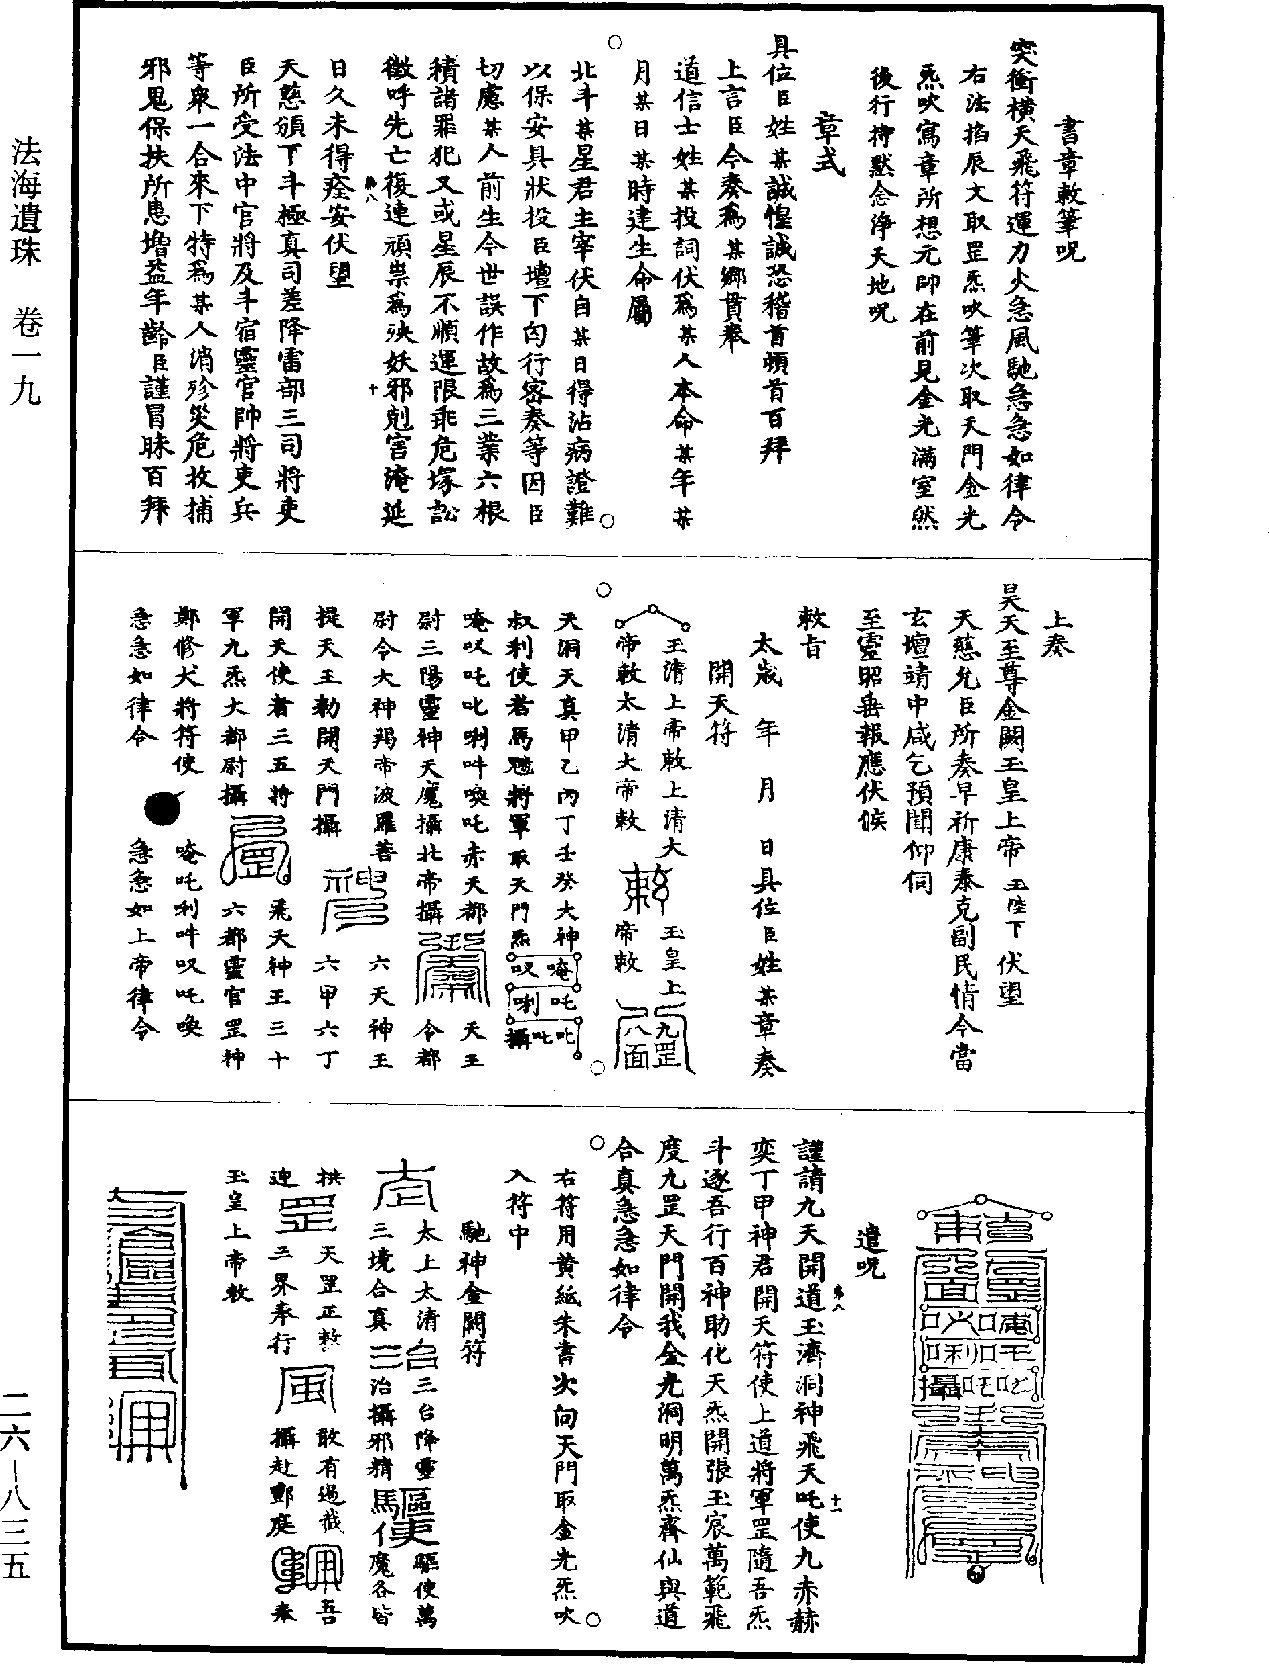 書章敕筆呪
突衝橫天飛符運力火急風馳急急如律令
右法掐辰文取罡炁吹筆次取天門金光
炁吹寫章所想元帥在前見金光滿室然
後行持默念淨天地呪
章式
具位臣姓某誠惶誠恐稽首頓首百拜
上言臣今奏爲某鄉貫奉
道信士姓某投詞伏爲某人本命某年某
月某日某時建生命屬
北斗某星君主宰伏自某日得沾病證難
以保安具狀投臣壇下匄行密奏等因臣
切慮某人前生今世誤作故爲三業六根
積諸罪犯又或星辰不順運限乖危塚訟
徵呼先亡復連頑祟爲殃妖邪剋害淹延
日久未得痊安伏望
天慈頒下斗極真司差降雷部三司將吏
臣所受法中官將及斗宿靈官帥將吏兵
等衆一合來下特爲某人消殄災危收捕
邪鬼保扶所患增益年齡臣謹冒昧百拜
上奏
昊天至尊金闕玉皇上帝玉陛下伏望
天慈允臣所奏早祈康泰克副民情今當
玄壇靖中咸乞預聞仰伺
至靈昭垂報應伏候
敕旨
太歲年月日具位臣姓某章奏
開天符
玉清上帝敕上清大
帝敕太清大帝敕
敕
玉皇上
帝敕
九罡
八面
天洞天真甲乙丙丁壬癸大神
叔利使者馬𩲃將軍取天門炁
唵吒吡
㕦唎吡攝
唵㕦吒吡唎吽喚吒赤天都
天王
尉三陽靈神天魔攝北帝攝
令都
尉令大神羯帝波羅菩
六天神王
提天王勑開天門攝
六甲六丁
開天使者三五將
飛天神王三十
軍九炁大都尉攝
六都靈官罡神
鄭修犬將符使
唵吒利吽㕦吒喚
急急如律令
急急如上帝律令
遣呪
謹請九天開道玉濟洞神飛天吒使九赤赫
奕丁甲神君開天符使上道將軍罡隨吾炁
斗逐吾行百神助化天炁開張玉宸萬範飛
度九罡天門開我金光洞明萬炁齊仙與道
合真急急如律令
右符用黃紙朱書次向天門取金光炁吹
入符中
馳神金闕符
太上太清
三境合真
三台
三台降靈
治攝邪精
驅使
驅使萬
魔各皆
拱
迎
罡
天罡正敕
三界奉行
風
敢有過截
攝赴酆庭
吾
奉
玉皇上帝敕
法海遺珠　卷一九
二六—八三五